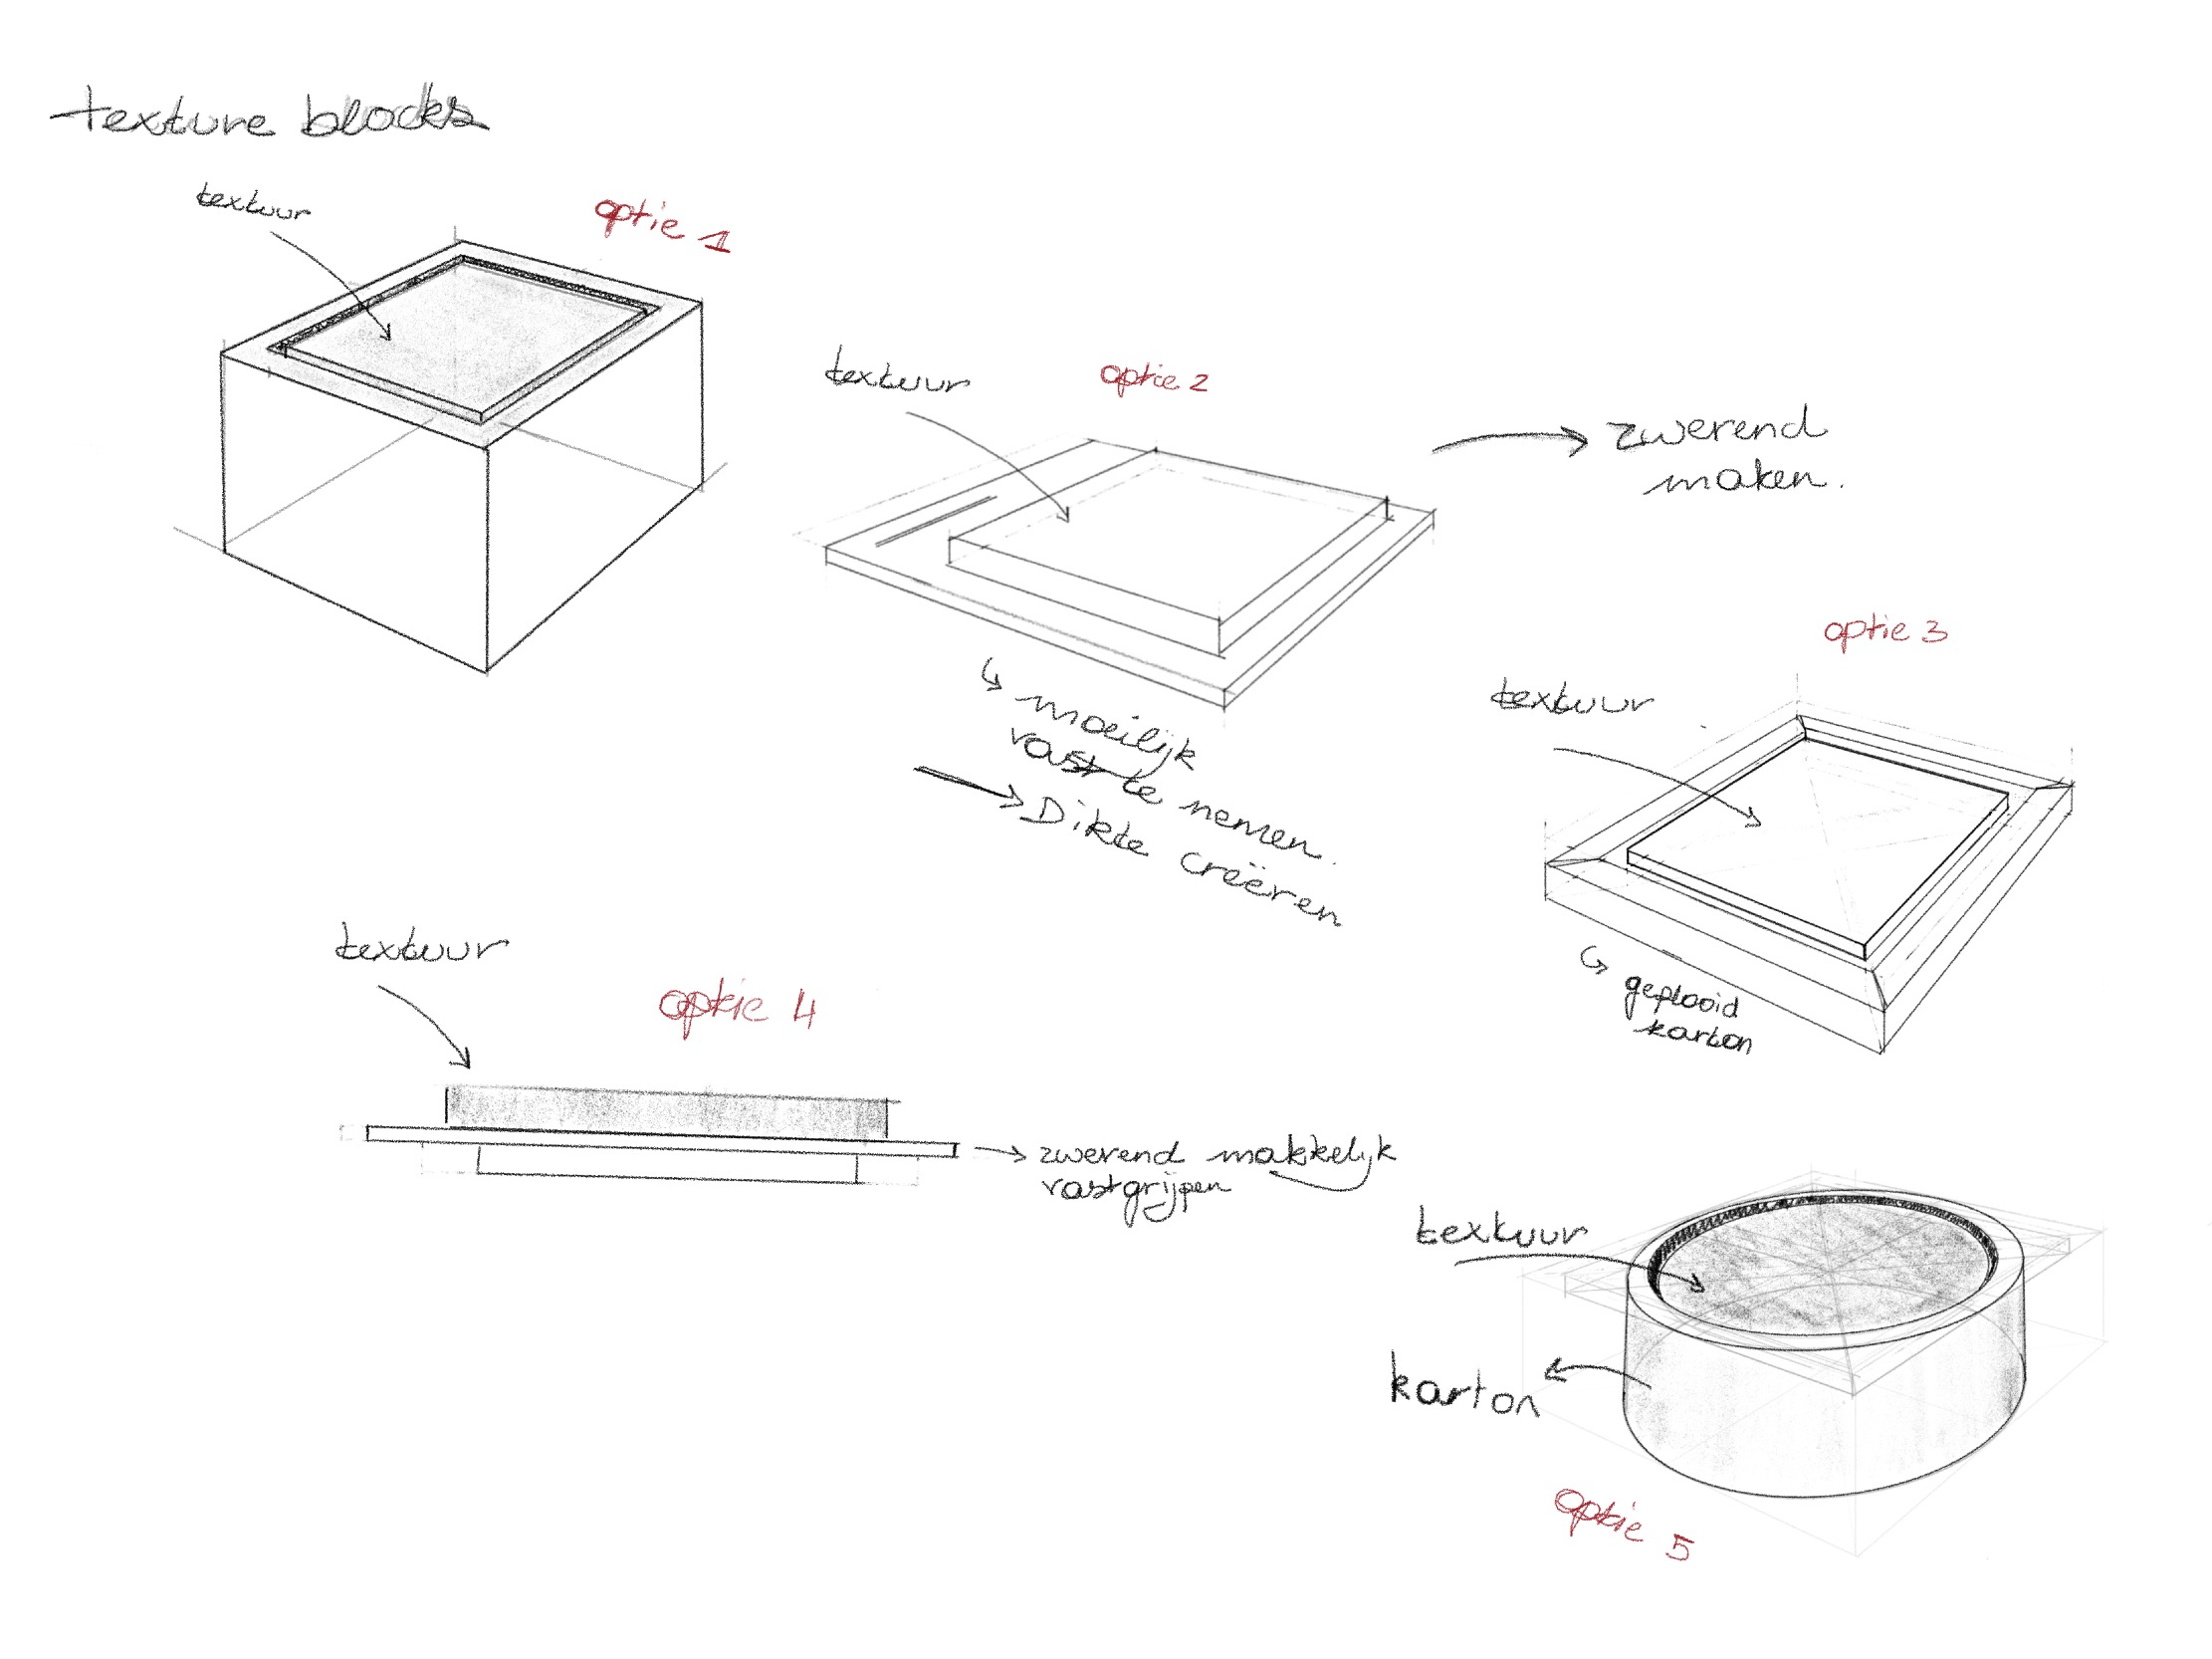 texture blocks
textuur
optie 1
textuur
optie 2
zwerend
maken.
↳ moeilijk
vast te nemen.
→ Dikte creëren
optie 3
textuur
↳ geplooid
karton
textuur
optie 4
zwerend makkelijk
vastgrijpen
textuur
karton
optie 5